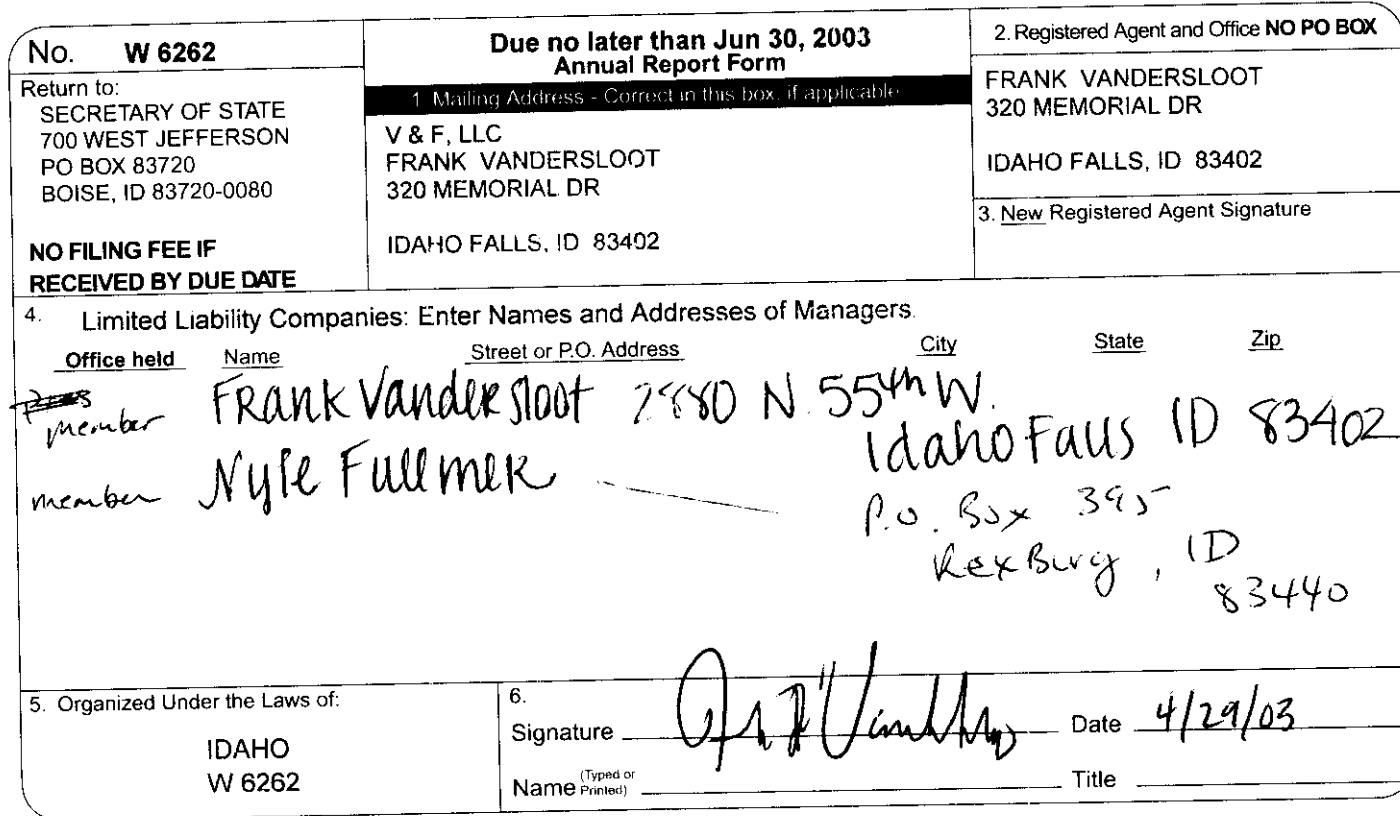 No. W 6262
Return to:
SECRETARY OF STATE
700 WEST JEFFERSON
PO BOX 83720
BOISE, ID 83720-0080
NO FILING FEE IF
RECEIVED BY DUE DATE
Due no later than Jun 30, 2003
Annual Report Form
1. Mailing Address - Correct in this box, if applicable
V & F, LLC
FRANK VANDERSLOOT
320 MEMORIAL DR
IDAHO FALLS, ID 83402
2. Registered Agent and Office NO PO BOX
FRANK VANDERSLOOT
320 MEMORIAL DR
IDAHO FALLS, ID 83402
3. New Registered Agent Signature
4. Limited Liability Companies: Enter Names and Addresses of Managers.
Office held Name Street or P.O. Address City State Zip
member Frank Vandersloot 2880 N. 55th W.
Idaho Falls ID 83402
member Nyle Fullmer
P.O. Box 395
RexBurg, ID
83440
5. Organized Under the Laws of:
IDAHO
W 6262
6.
Signature Date 4/29/03
Name (Typed or Printed) Title